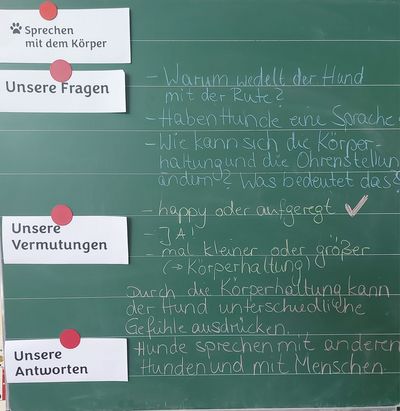 Sprechen
mit dem Körper
Unsere Fragen
- Warum wedelt der Hund
mit der Rute?
- Haben Hunde eine Sprache?
- Wie kann sich die Körper-
haltung und die Ohrenstellung
ändern? Was bedeutet das?
Unsere
Vermutungen
- happy oder aufgeregt ✓
- JA!
- mal kleiner oder größer
(→ Körperhaltung)
Durch die Körperhaltung kann
der Hund unterschiedliche
Gefühle ausdrücken.
Unsere
Antworten
Hunde sprechen mit anderen
Hunden und mit Menschen.